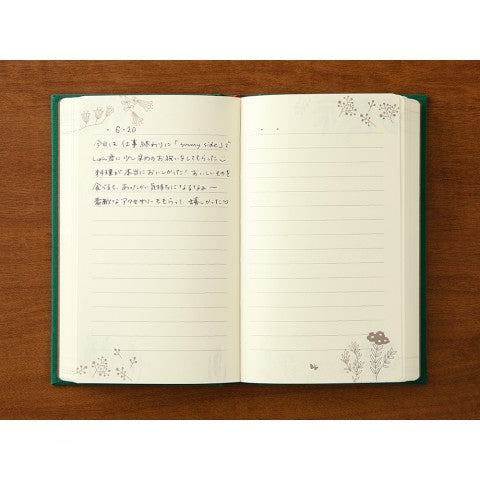 ・6・20
今日は仕事終わりに「sunny side」で
しゅん君に少し早めのお祝いをしてもらった
料理が本当においしかった! おいしいものを
食べると、あったかい気持ちになるなぁー
素敵なアクセサリーももらって嬉しかった♡